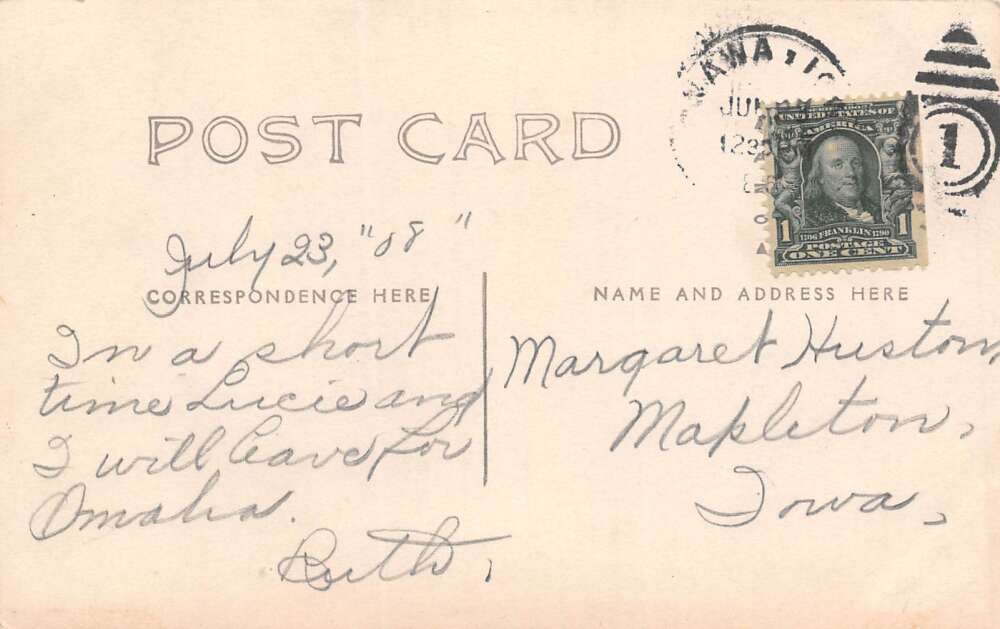 POST CARD
NAWA, IO
JUL
1230
1
UNITED STATES OF
AMERICA
1 1706 FRANKLIN 1790 1
POSTAGE
ONE CENT
July 23, "08"
CORRESPONDENCE HERE
In a short
time Lucie and
I will leave for
Omaha.
Ruth,
NAME AND ADDRESS HERE
Margaret Huston
Mapleton,
Iowa,